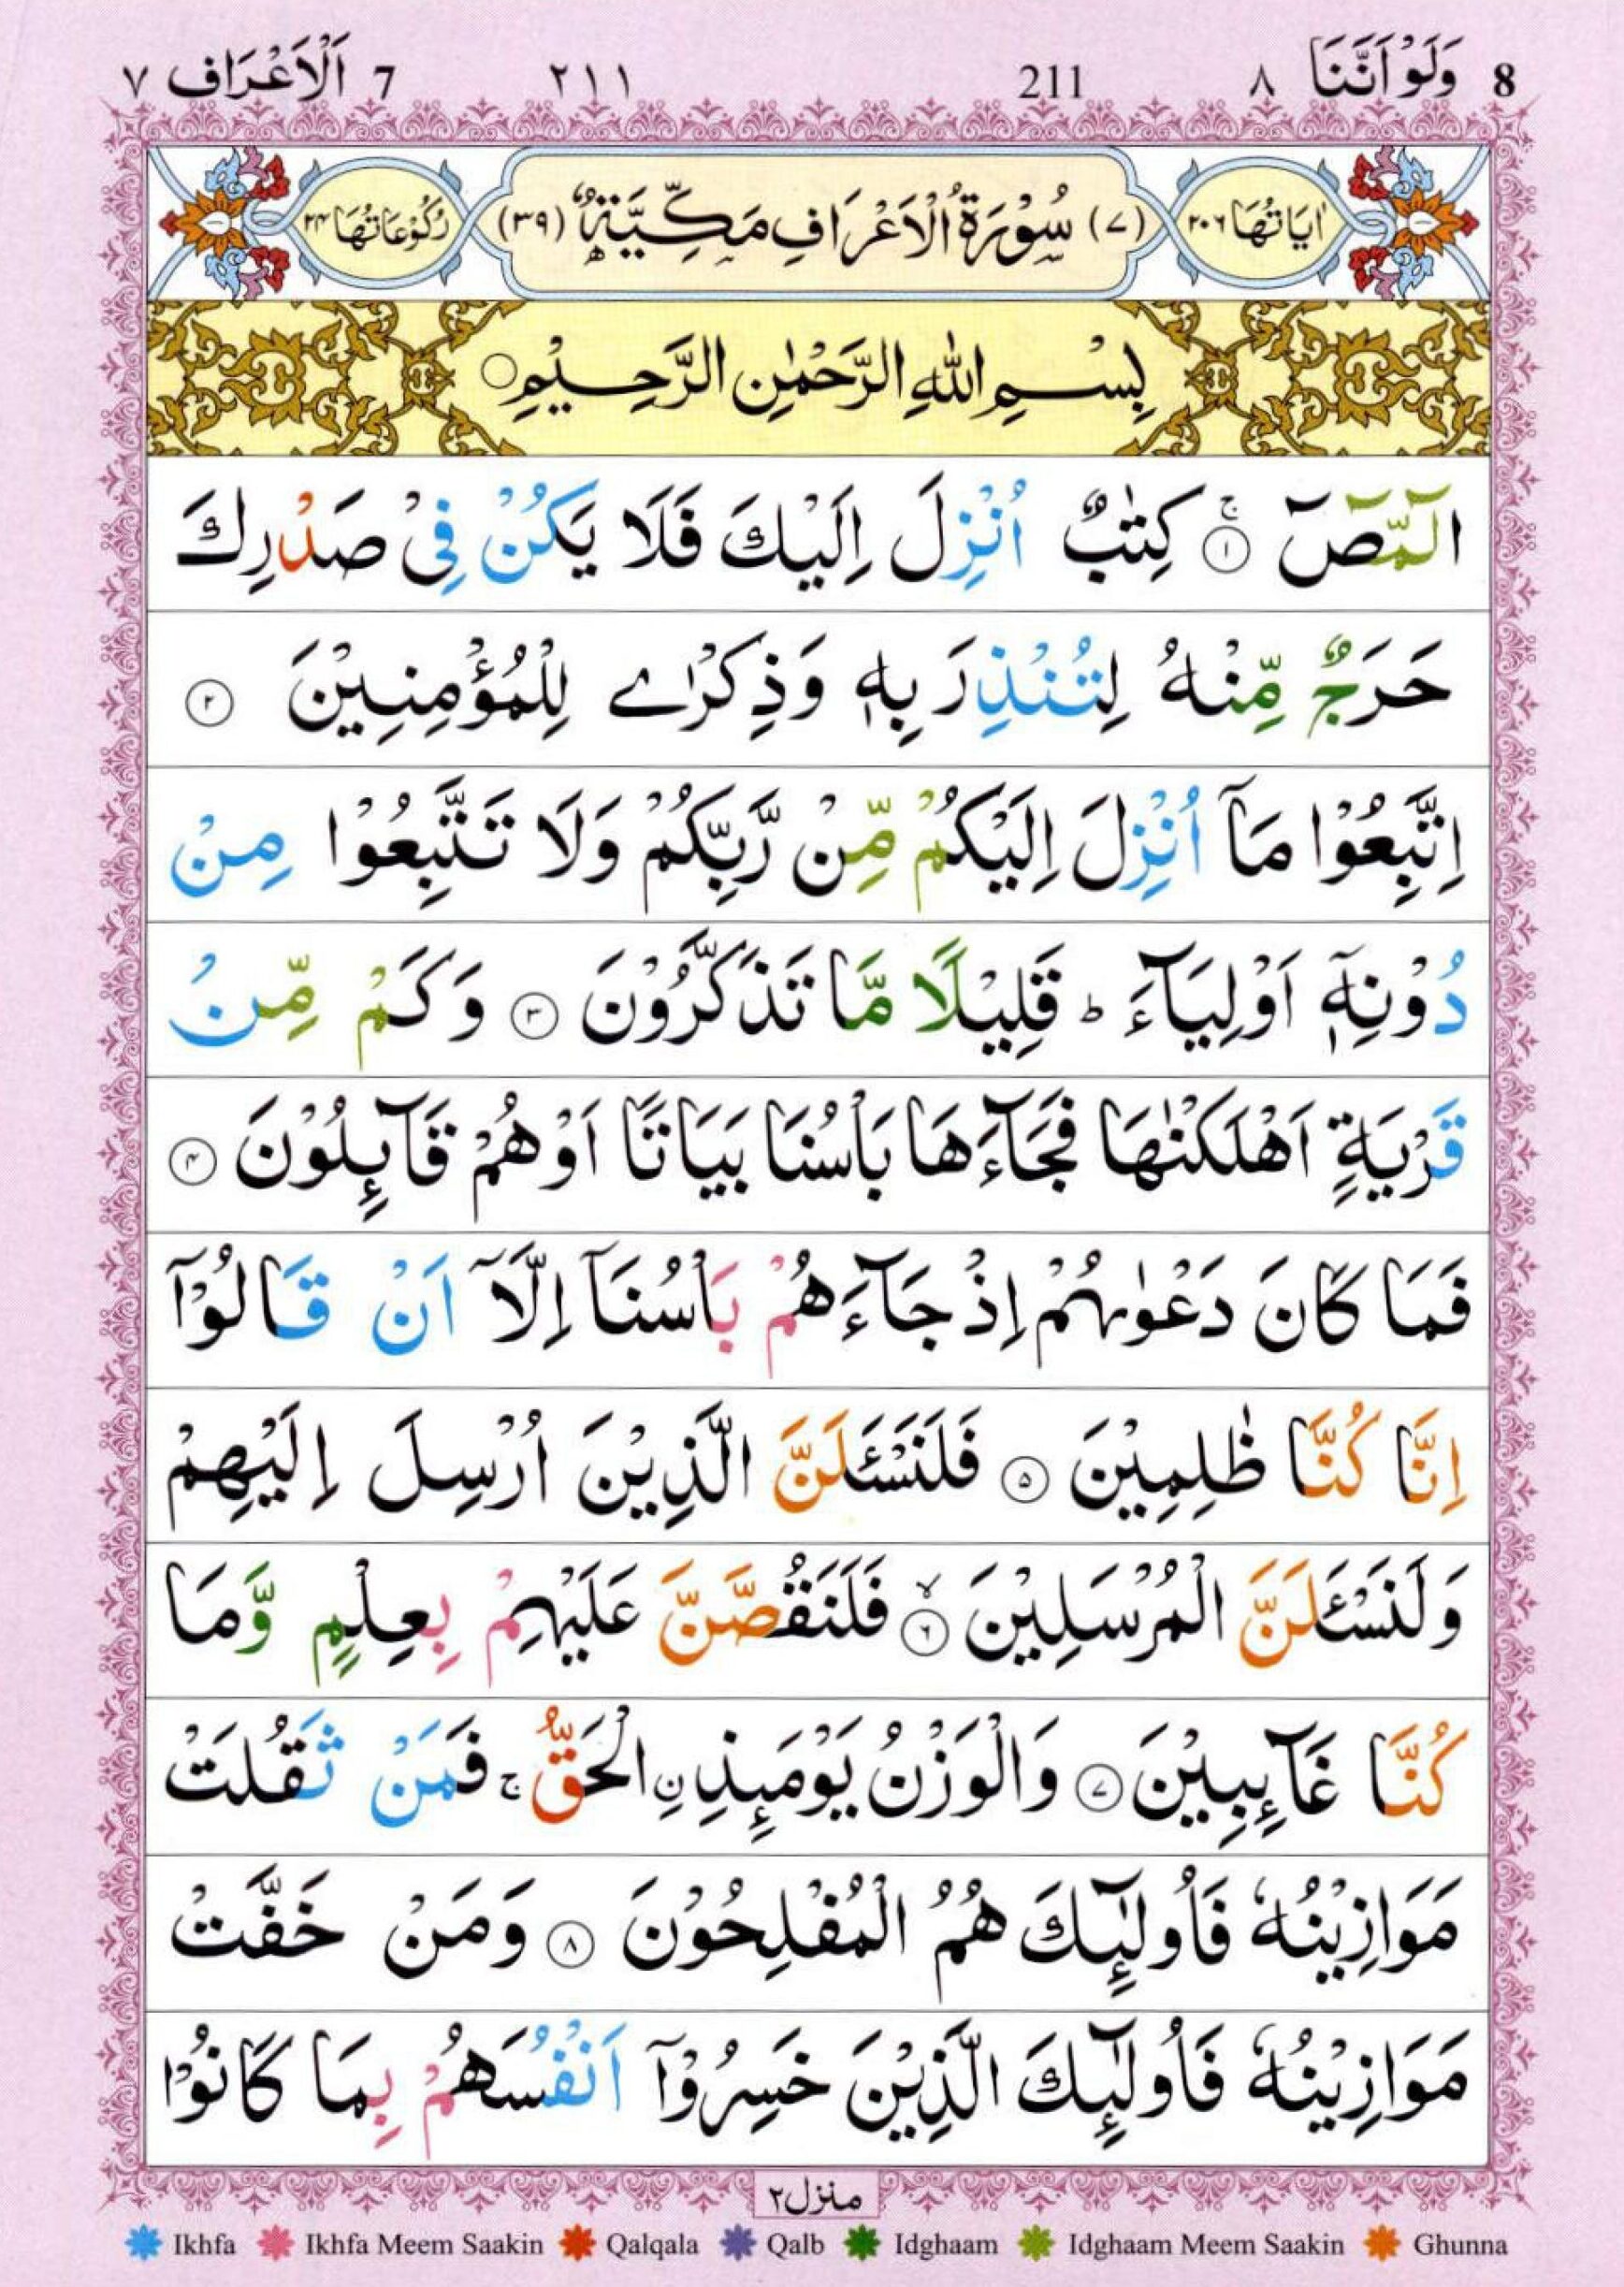 8 وَلَوْ اَنَّنَا ٨ 211 ٢١١ 7 اَلْاَعْرَاف ٧
اٰيَاتُهَا ٢٠٦ (٧) سُوْرَةُ الْاَعْرَافِ مَكِّيَّةٌ (٣٩) رُكُوْعَاتُهَا ٢٤
بِسْمِ اللّٰهِ الرَّحْمٰنِ الرَّحِيْمِ ○
الٓمّٓصٓ ۚ ﴿١﴾ كِتٰبٌ اُنْزِلَ اِلَيْكَ فَلَا يَكُنْ فِيْ صَدْرِكَ
حَرَجٌ مِّنْهُ لِتُنْذِرَ بِهٖ وَذِكْرٰى لِلْمُؤْمِنِيْنَ ﴿٢﴾
اِتَّبِعُوْا مَآ اُنْزِلَ اِلَيْكُمْ مِّنْ رَّبِّكُمْ وَلَا تَتَّبِعُوْا مِنْ
دُوْنِهٖٓ اَوْلِيَآءَ ؕ قَلِيْلًا مَّا تَذَكَّرُوْنَ ﴿٣﴾ وَكَمْ مِّنْ
قَرْيَةٍ اَهْلَكْنٰهَا فَجَآءَهَا بَاْسُنَا بَيَاتًا اَوْ هُمْ قَآئِلُوْنَ ﴿٤﴾
فَمَا كَانَ دَعْوٰىهُمْ اِذْ جَآءَهُمْ بَاْسُنَآ اِلَّآ اَنْ قَالُوْٓا
اِنَّا كُنَّا ظٰلِمِيْنَ ﴿٥﴾ فَلَنَسْـَٔلَنَّ الَّذِيْنَ اُرْسِلَ اِلَيْهِمْ
وَلَنَسْـَٔلَنَّ الْمُرْسَلِيْنَ ۙ ﴿٦﴾ فَلَنَقُصَّنَّ عَلَيْهِمْ بِعِلْمٍ وَّمَا
كُنَّا غَآئِبِيْنَ ﴿٧﴾ وَالْوَزْنُ يَوْمَئِذِ ِۨالْحَقُّ ۚ فَمَنْ ثَقُلَتْ
مَوَازِيْنُهٗ فَاُولٰٓئِكَ هُمُ الْمُفْلِحُوْنَ ﴿٨﴾ وَمَنْ خَفَّتْ
مَوَازِيْنُهٗ فَاُولٰٓئِكَ الَّذِيْنَ خَسِرُوْٓا اَنْفُسَهُمْ بِمَا كَانُوْا
منزل ٢
Ikhfa Ikhfa Meem Saakin Qalqala Qalb Idghaam Idghaam Meem Saakin Ghunna